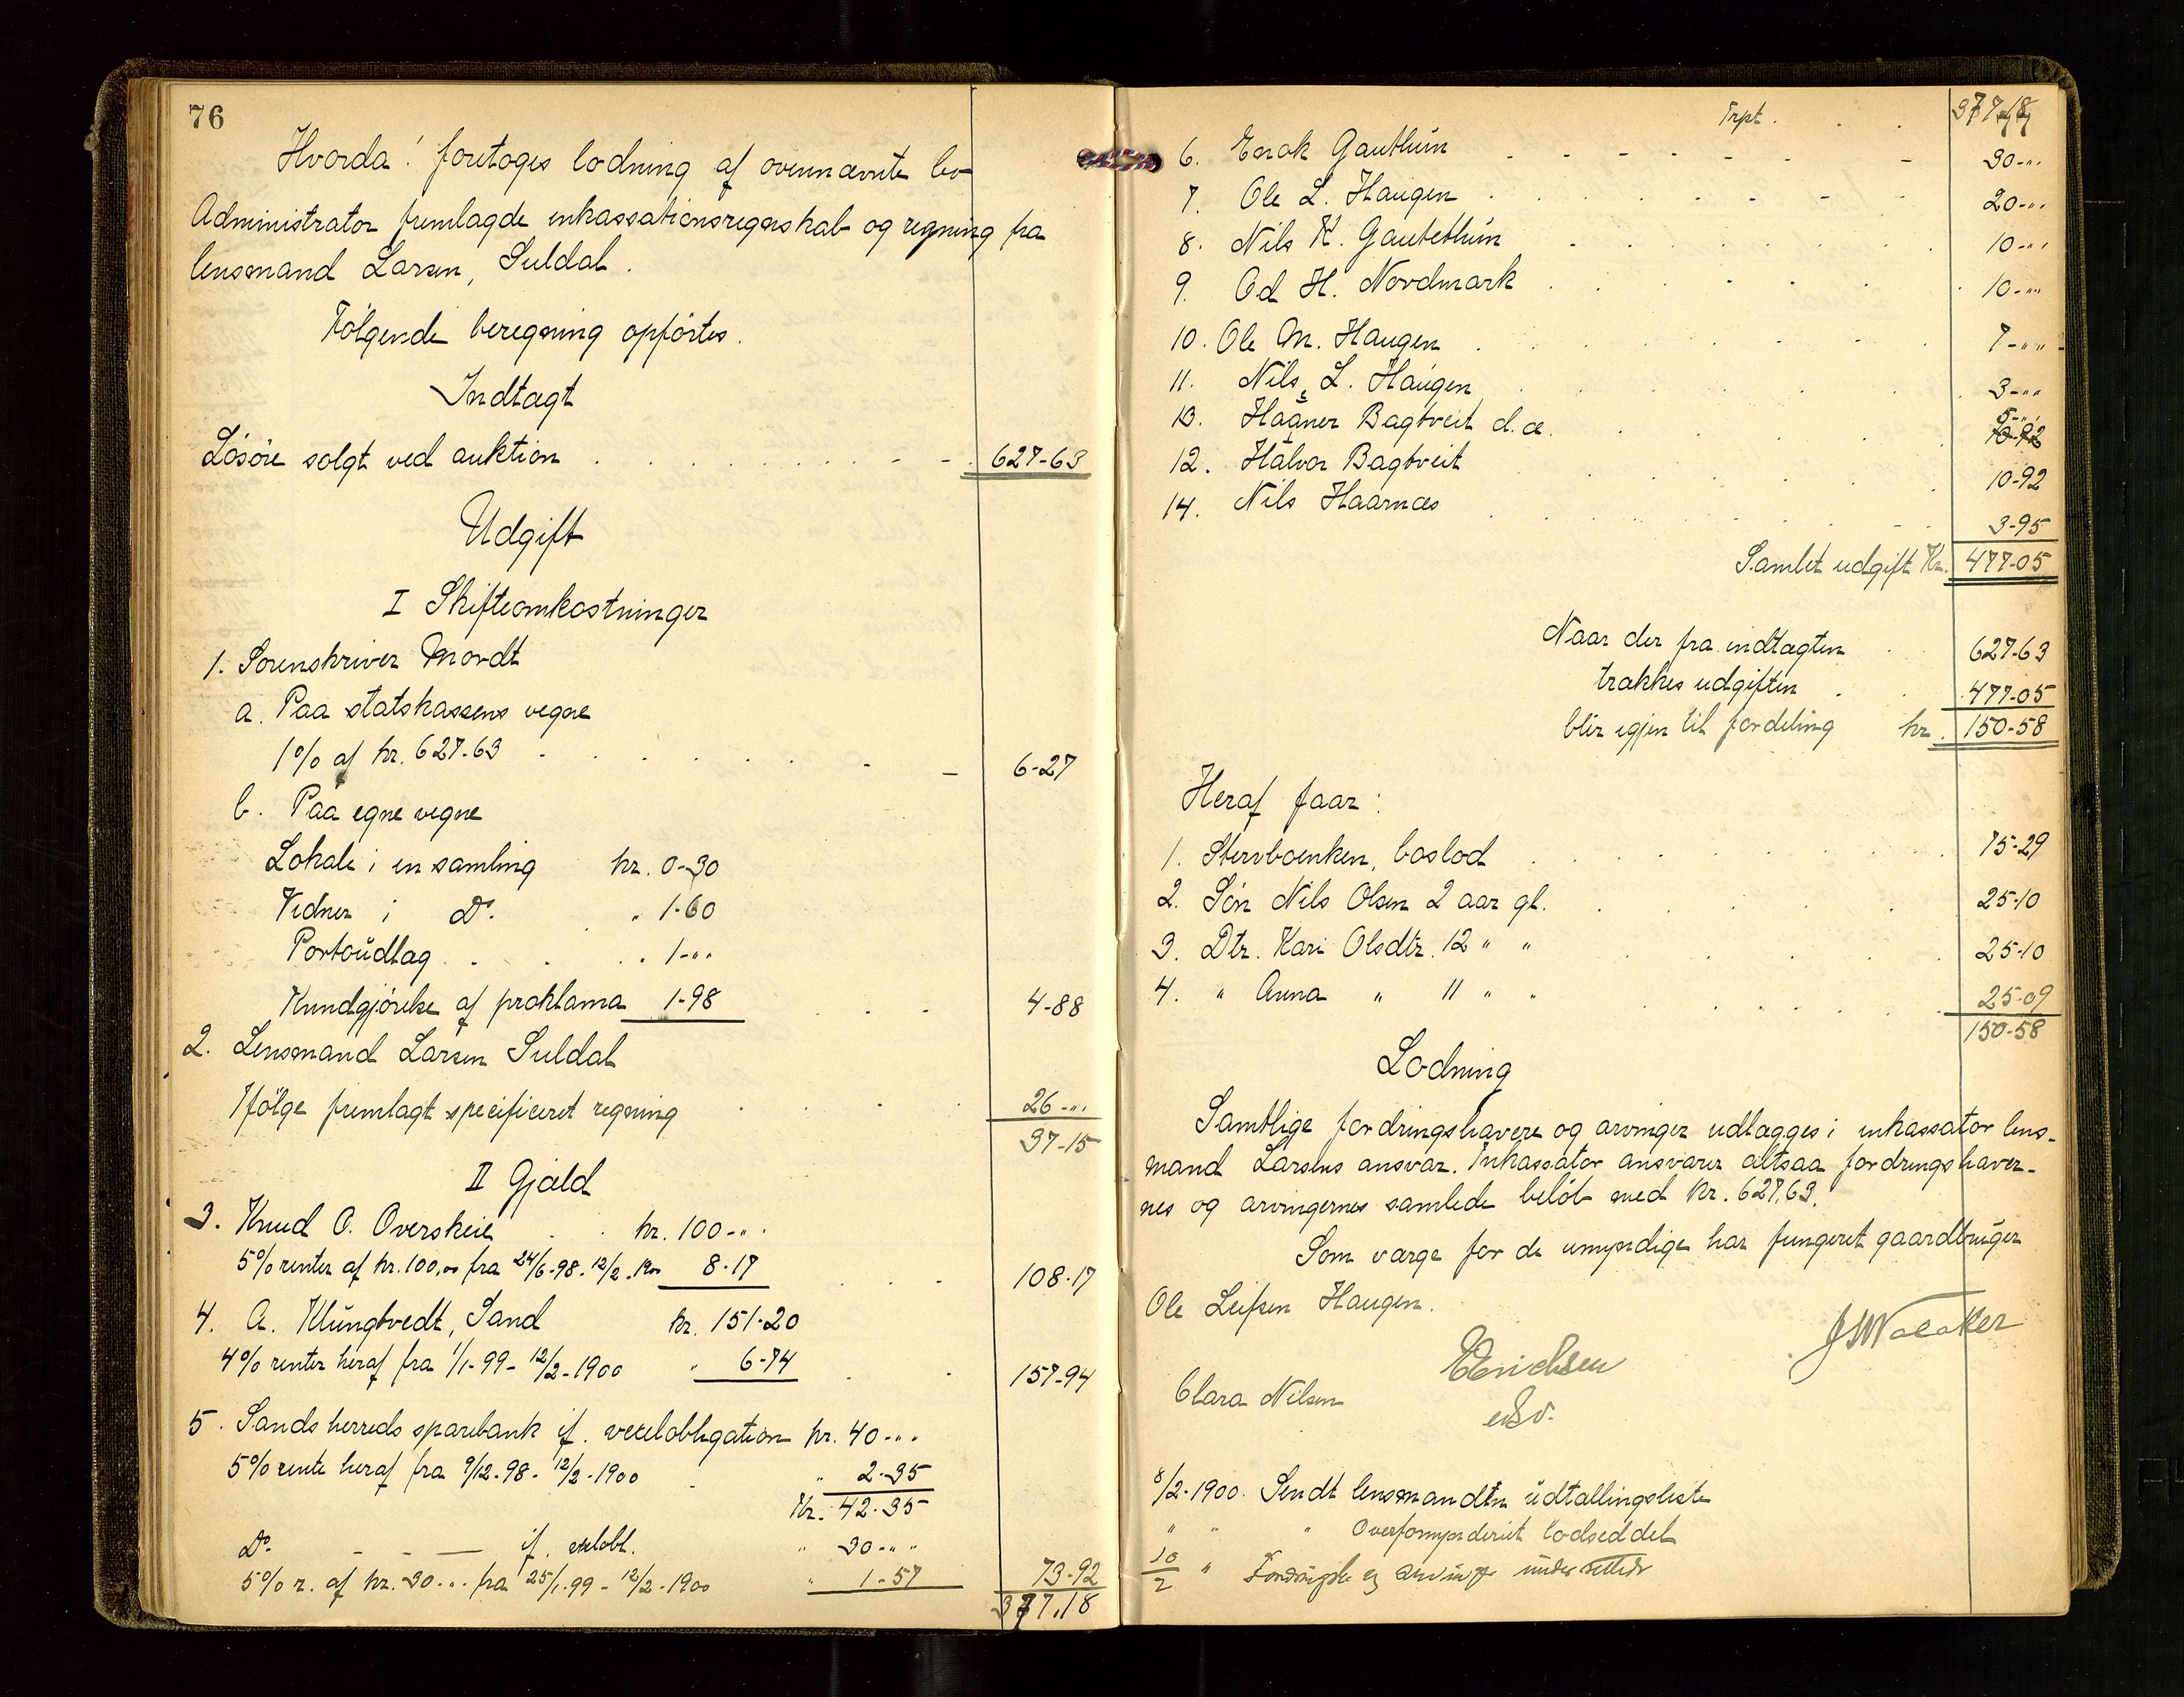 76
Hvorda! foretoges lodning af ovennævnte bo
Administrator fremlagde inkassationsregnskab og regning fra
lensmand Larsen, Suldal.
Følgende beregning opførtes.
Indtægt
Løsøre solgt ved auktion . . . 627-63
Udgift
I Skifteomkostninger
1. Sorenskriver Mordt
a. Paa statskassens vegne
1% af kr. 627-63 . . . 6-27
b. Paa egne vegne
Lokale i en samling kr. 0-30
Vidner i Do. " 1-60
Portoudlag . . . 1-""
Kundgjørelse af proklama 1-98 . . . 4-88
2. Lensmand Larsen Suldal
Ifølge fremlagt specificeret regning . . . 26-""
37-15
II Gjæld
3. Knud O. Overskeie . . kr. 100-""
5% renter af kr. 100,00 fra 24/6-98-12/2-1900 8-17 . . . 108-17
4. A. Klungtvedt, Sand kr. 151-20
4% renter heraf fra 1/1-99-12/2-1900 " 6-74 . . 157-94
5. Sands herreds sparebank if. vexelobligation kr. 40-""
5% rente heraf fra 9/12-98-12/2-1900 . " 2-35
Kr. 42-35
Do. - - — if. vexlobl. " 30-""
5% r. af kr. 30-"" fra 25/1-99-12/2-1900 " 1-57 73-92
377,18
Trpt. . . . 377-18
6. Enok Gauthun . . . 30-""
7. Ole L. Haugen . . . 20-""
8. Nils K. Gautethun . . . 10-""
9. Od H. Nordmark . . . 10-""
10. Ole M. Haugen . . . 7-""
11. Nils L. Haugen . . . 3-""
13. Haaner Bagtveit d.æ. . . . 5-""
10-92
12. Halvor Bagtveit . . . 10-92
14. Nils Haarnæs . . . 3-95
Samlet udgift Kr. 477-05
Naar der fra indtægten . 627-63
trækkes udgiften . . 477-05
blir igjen til fordeling kr. 150-58
Heraf faar:
1. Stervboenken, boslod . . . 75-29
2. Søn Nils Olsen 2 aar gl. . . . 25-10
3. Dtr. Kari Olsdtr. 12 " " . . . 25-10
4. " Anna " 11 " " . . . 25-09
150-58
Lodning
Samtlige fordringshavere og arvinger udlægges i inkassator lens-
mand Larsens ansvar. Inkassator ansvarer altsaa fordringshaver-
nes og arvingernes samlede beløb med Kr. 627,63.
Som værge for de umyndige har fungeret gaardbruger
Ole Leifsen Haugen.
Clara Nilsen
8/2-1900. Sendt lensmandtn udtallingsliste
" " " Overformynderiet lodseddel
10/2 "